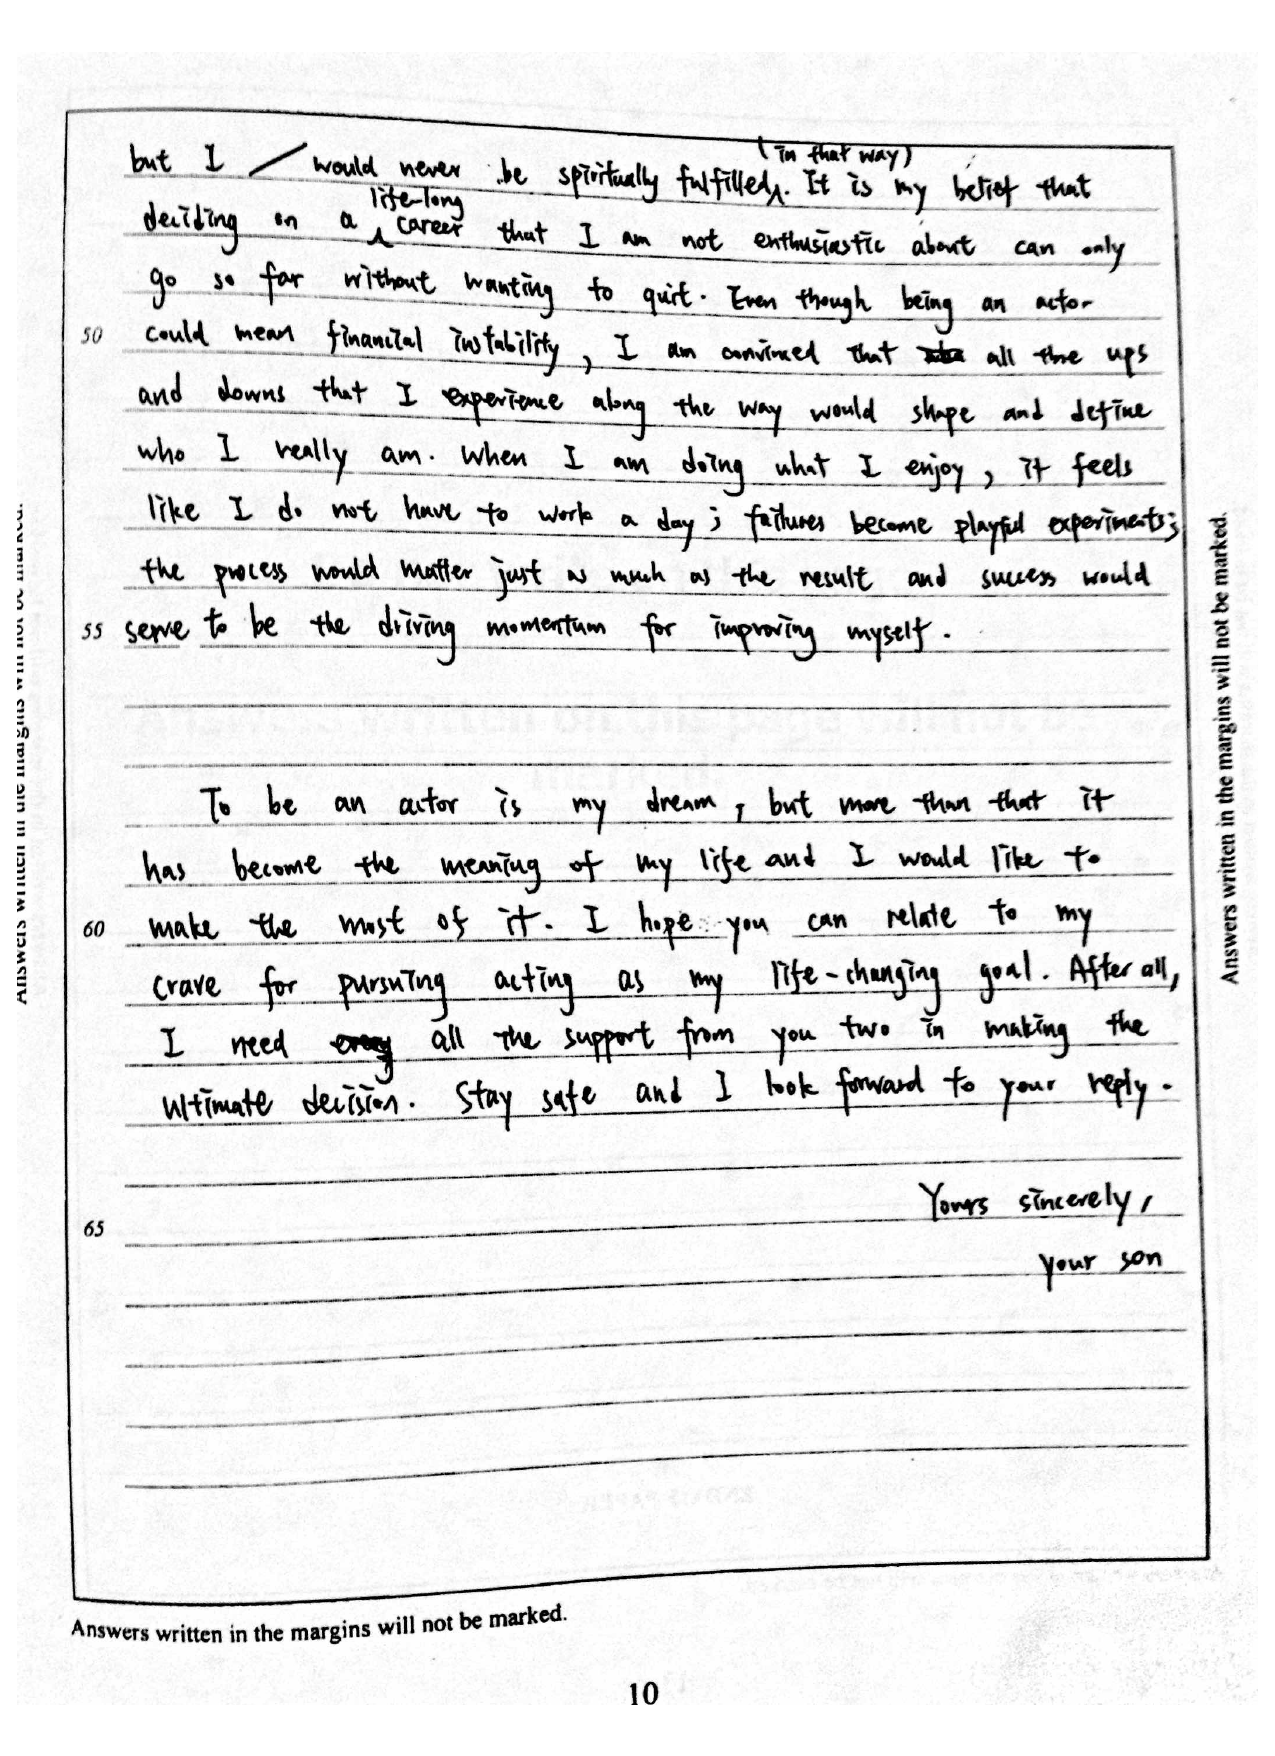 but I would never be spiritually fulfilled (in that way). It is my belief that
deciding on a life-long career that I am not enthusiastic about can only
go so far without wanting to quit. Even though being an actor
50 could mean financial instability, I am convinced that all the ups
and downs that I experience along the way would shape and define
who I really am. When I am doing what I enjoy, it feels
like I do not have to work a day; failures become playful experiments;
the process would matter just as much as the result and success would
55 serve to be the driving momentum for improving myself.
To be an actor is my dream, but more than that it
has become the meaning of my life and I would like to
60 make the most of it. I hope you can relate to my
crave for pursuing acting as my life-changing goal. After all,
I need all the support from you two in making the
ultimate decision. Stay safe and I look forward to your reply.
Yours sincerely,
65
your son
Answers written in the margins will not be marked.
Answers written in the margins will not be marked.
Answers written in the margins will not be marked.
10